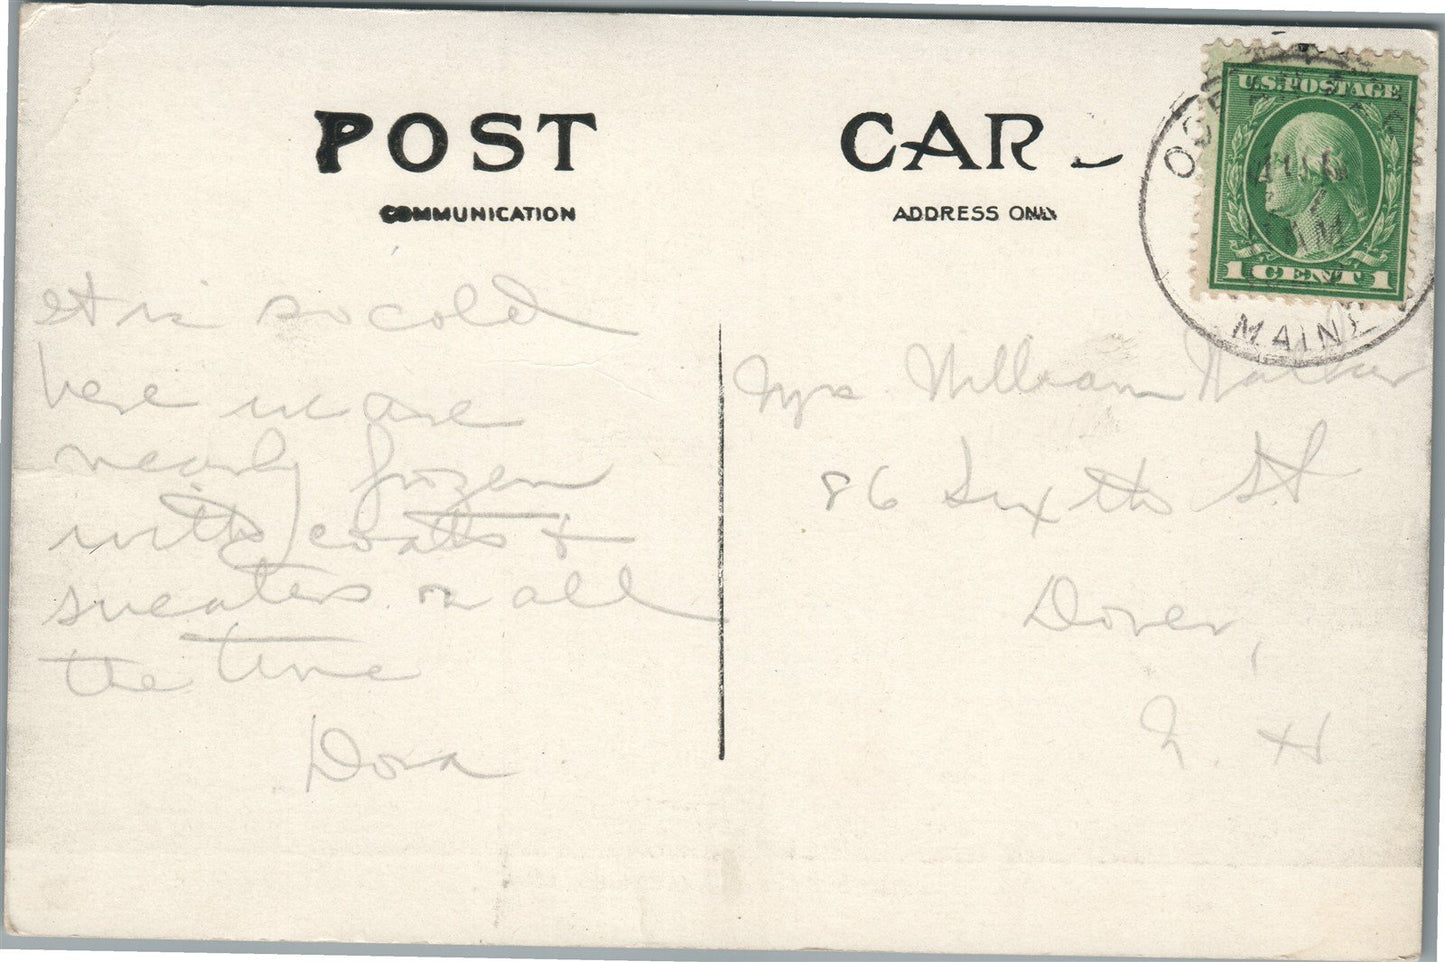 POST CAR
COMMUNICATION
ADDRESS ONLY
U.S. POSTAGE
1 CENT 1
AUG
7
AM
MAINE
It is so cold
here we are
nearly frozen
with coats +
sweaters on all
the time
Dora
Mrs William Walker
86 Sixth St
Dover,
N. H